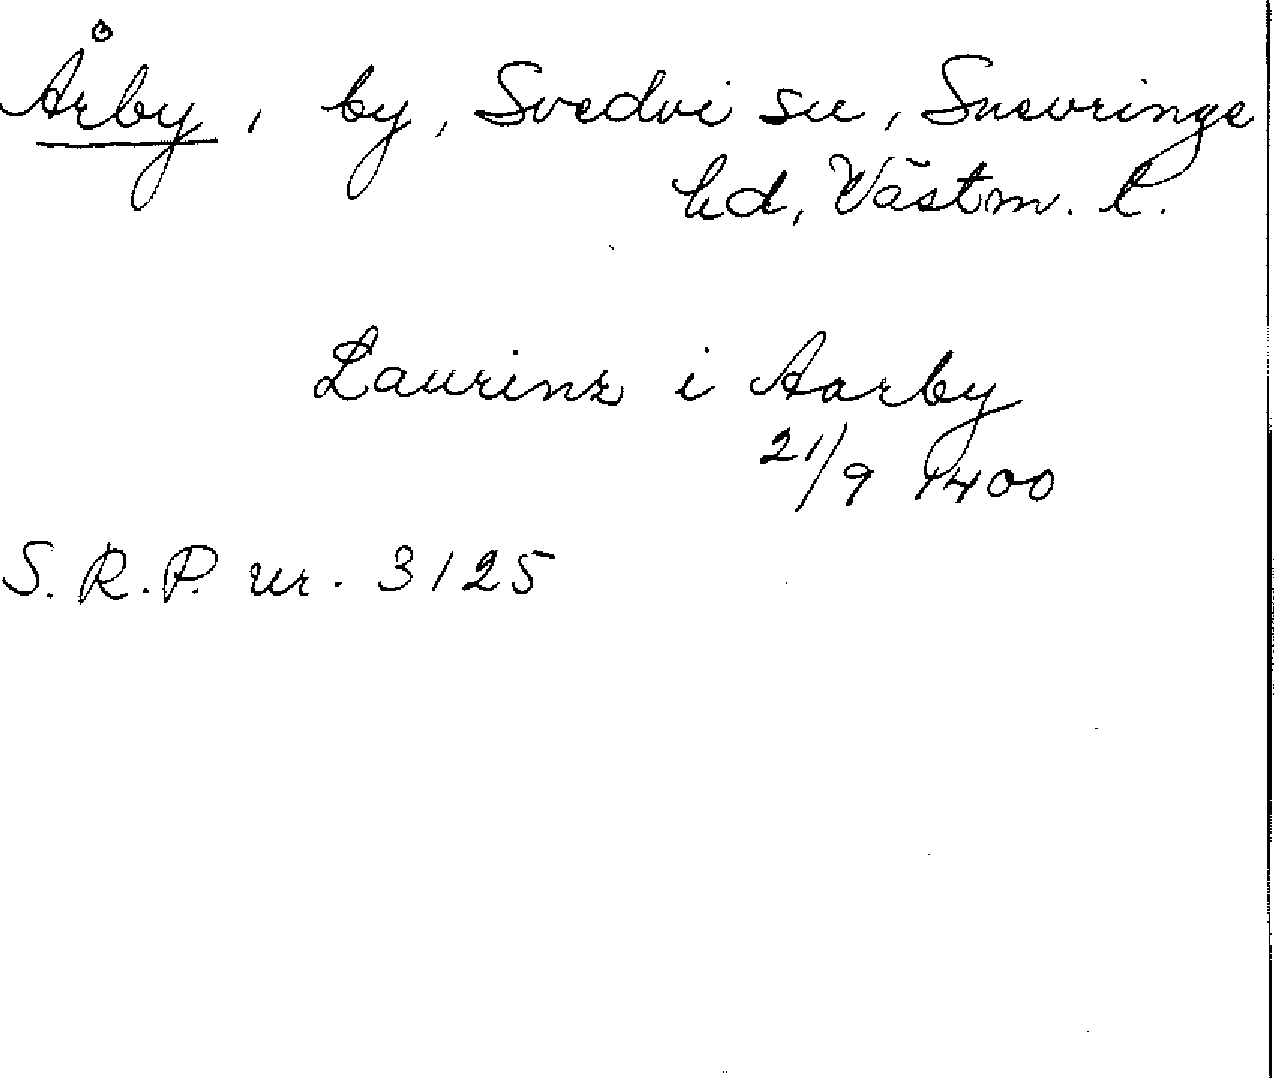 Årby, by, Svedvi sn, Snevringe
hd, Västm. l.
Laurinz i Aarby
21/9 1400
S.R.P. nr. 3125